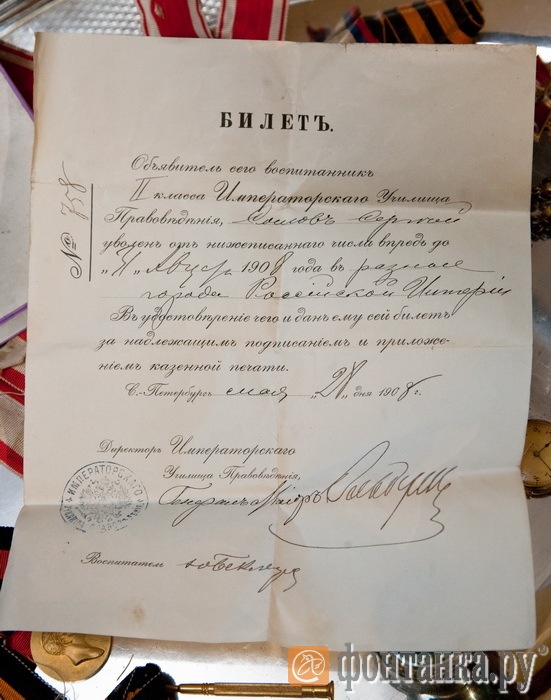 БИЛЕТЪ.
№ 758
Объявитель сего воспитанникъ
II класса Императорскаго Училища
Правовѣдѣнія, Сергѣй
уволенъ отъ нижеписаннаго числа впредь до
"11" Авгус 1908 года въ разные
города Россійской Имперіи
Въ удостовѣреніе чего и данъ ему сей билетъ
за надлежащимъ подписаніемъ и приложе-
ніемъ казенной печати.
С.-Петербургъ мая "28" дня 1908 г.
Директоръ Императорскаго
Училища Правовѣдѣнія,
ИМПЕРАТОРСКАГО
Генералъ Маіоръ
Воспитатель
фонтанка.ру